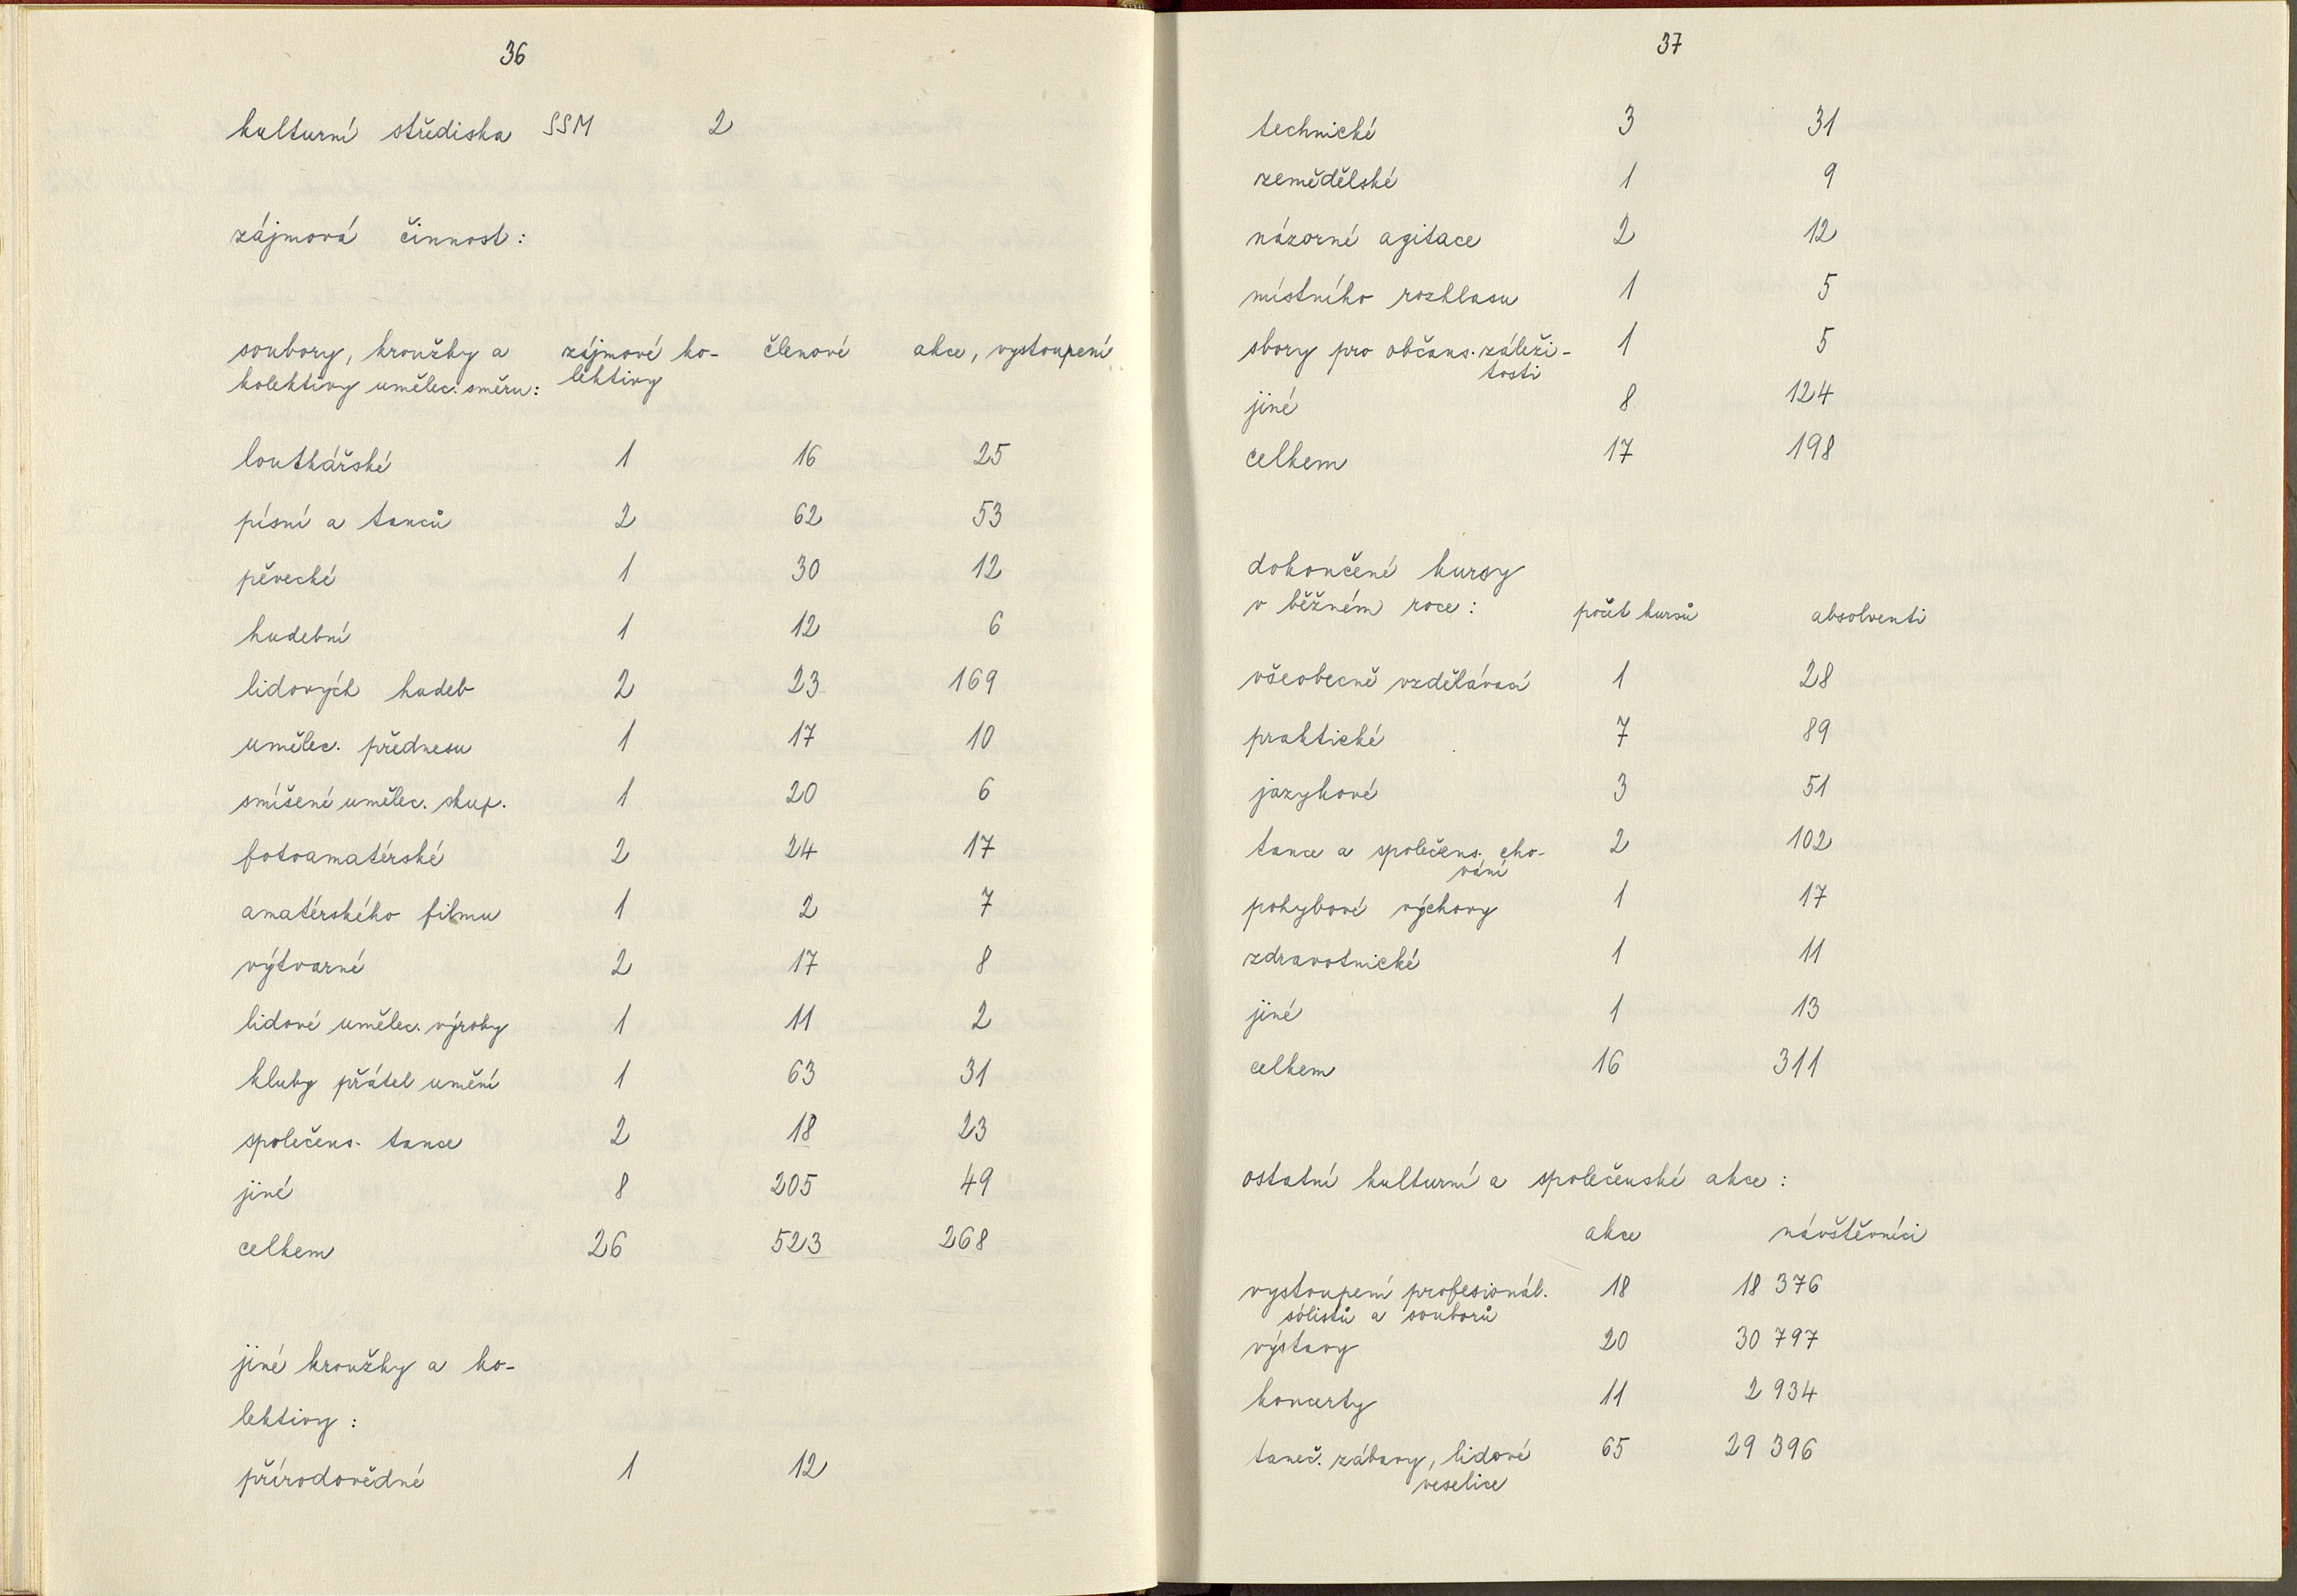 36
kulturní střediska SSM 2
zájmová činnost:
soubory, kroužky a zájmové ko- členové akce, vystoupení
kolektivy umělec. směru: lektivy
loutkářské 1 16 25
písní a tanců 2 62 53
pěvecké 1 30 12
hudební 1 12 6
lidových hudeb 2 23 169
umělec. přednesu 1 17 10
smíšené umělec. skup. 1 20 6
fotoamatérské 2 24 17
amatérského filmu 1 2 7
výtvarné 2 17 8
lidové umělec. výroby 1 11 2
kluby přátel umění 1 63 31
společens. tance 2 18 23
jiné 8 205 49
celkem 26 523 268
jiné kroužky a ko-
lektivy:
přírodovědné 1 12
37
technické 3 31
zemědělské 1 9
názorné agitace 2 12
místního rozhlasu 1 5
sbory pro občans. záleži- 1 5
tosti
jiné 8 124
celkem 17 198
dokončené kursy
v běžném roce: počet kursů absolventi
všeobecně vzdělávací 1 28
praktické 7 89
jazykové 3 51
tance a společens. cho- 2 102
vání
pohybové výchovy 1 17
zdravotnické 1 11
jiné 1 13
celkem 16 311
ostatní kulturní a společenské akce:
akce návštěvníci
vystoupení profesionál. 18 18 376
sólistů a souborů
výstavy 20 30 797
koncerty 11 2 934
taneč. zábavy, lidové 65 29 396
veselice